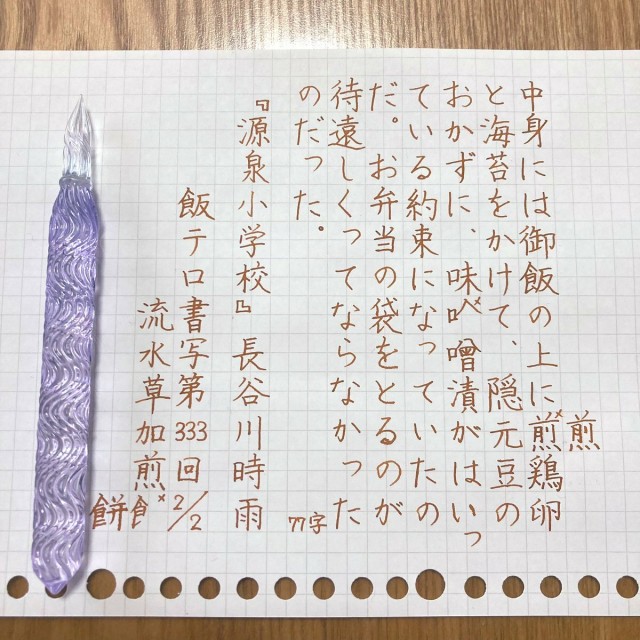 中身には御飯の上に煎鶏卵
煎
と海苔をかけて、隠元豆の
おかずに、味噌漬がはいっ
ている約束になっていたの
だ。お弁当の袋をとるのが
待遠しくってならなかった
のだった。
77字
『源泉小学校』長谷川時雨
飯テロ書写第333回2/2
流水草加煎餅